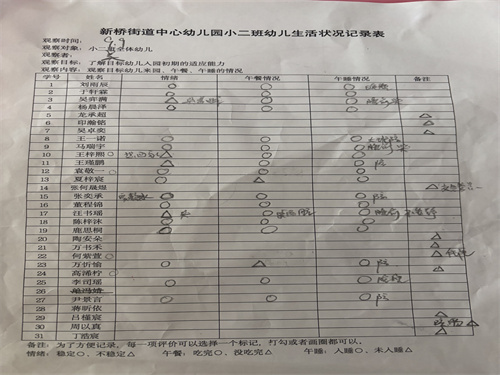 新桥街道中心幼儿园小二班幼儿生活状况记录表
观察时间：9.9
观察对象：小二班全体幼儿
观察者：
观察目标：了解目标幼儿入园初期的适应能力
观察内容：观察目标幼儿来园、午餐、午睡的情况
学号 姓名 情绪 午餐情况 午睡情况 备注
1 刘雨辰 ○ ○ ○
2 丁轩霖 ○ ○ ○
3 吴弈满 △ ○ ○
4 杨晨泽 ○ ○ ○
5 龙承超 △
6 印瀚铭 △
7 吴卓奕 △
8 王一诺 ○ ○ ○
9 马瑞宇 ○ ○ ○
10 王梓熙 ○ ○ ○
11 王瑾鹏 △ ○ ○
12 袁敬一 ○ ○ ○
13 夏梓宸 ○ △ ○
14 张何晟煜 △
15 张奕承 ○ ○ ○
16 董程锦 ○ ○ ○
17 汪书瑶 △ ○ ○
18 陈梓沐 ○ ○ ○
19 鹿思桐 ○ ○ ○
20 陶安朵 △
21 万书禾 △
22 何紫萱 △
23 万忻愉 ○ △ ○
24 高浠柠 △
25 李司瑶 ○ ○ ○
26
27 尹景言 ○ ○ ○
28 蒋昕依 △
29 吕槿宸 △
30 周以真 △
31 丁浩宸 △
备注：为了方便记录，每一项评价可以选择一个标记，打勾或者画圈都可以。
情绪：稳定○，不稳定△ 午餐：吃完○，没吃完△ 午睡：入睡○，未入睡△